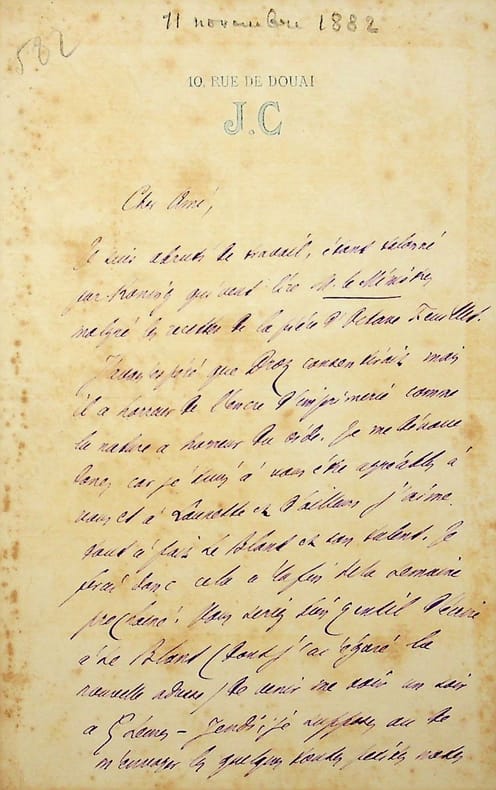 11 novembre 1882
582
10, RUE DE DOUAI
J.C
Cher Ami,
Je suis abruti de travail, étant talonné
par Koning qui veut lire M. le Ministre
malgré les recettes de la pièce d'Octave Feuillet.
J'avais espéré que Droz consentirait mais
il a horreur de l'encre d'imprimerie comme
la nature a horreur du vide. Je me dévoue
donc car je tiens à vous être agréable à
vous et à Launette et d'ailleurs j'aime
tout à fait Le Blant et son talent. Je
ferai donc cela à la fin de la semaine
prochaine. Vous seriez bien gentil d'écrire
à Le Blant (dont j'ai égaré la
nouvelle adresse) de venir me voir un soir
à 5 heures – Jeudi, je suppose, ou de
m'envoyer les quelques toutes petites notes